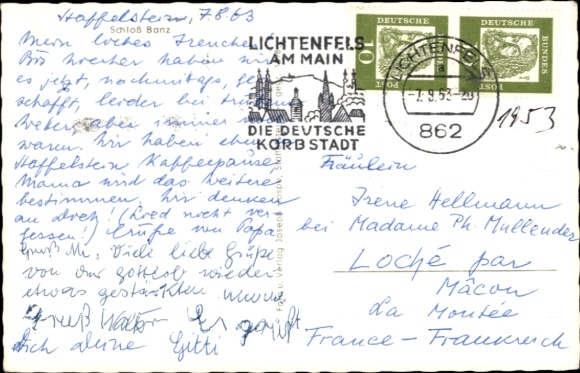 Staffelstein, 7.8.63
Schloß Banz
Mein liebes Irenchen!
Bis hierher haben wir
es jetzt, nachmittags, ge-
schafft, leider bei trübem
Wetter, aber immer noch
warm. Wir haben eben
Staffelstein Kaffeepause
Mama wird das weitere
bestimmen. Wir denken
an Dich! (Roed nicht ver-
gessen!) Grüße von Papa
Gruß Mi. Viele liebe Grüße
von der gottlob wieder
etwas gestärkten
Gruß Walter Es grüßt
Dich Deine Gitti
LICHTENFELS
AM MAIN
DIE DEUTSCHE
KORBSTADT
DEUTSCHE
BUNDES
POST
10
DEUTSCHE
BUNDES
POST
LICHTENFELS
a
862
1953
Verlag Joseph
Fräulein
Irene Hellmann
bei Madame Ph. Mullender
Loché par
Mâcon
La Montée
France - Frankreich